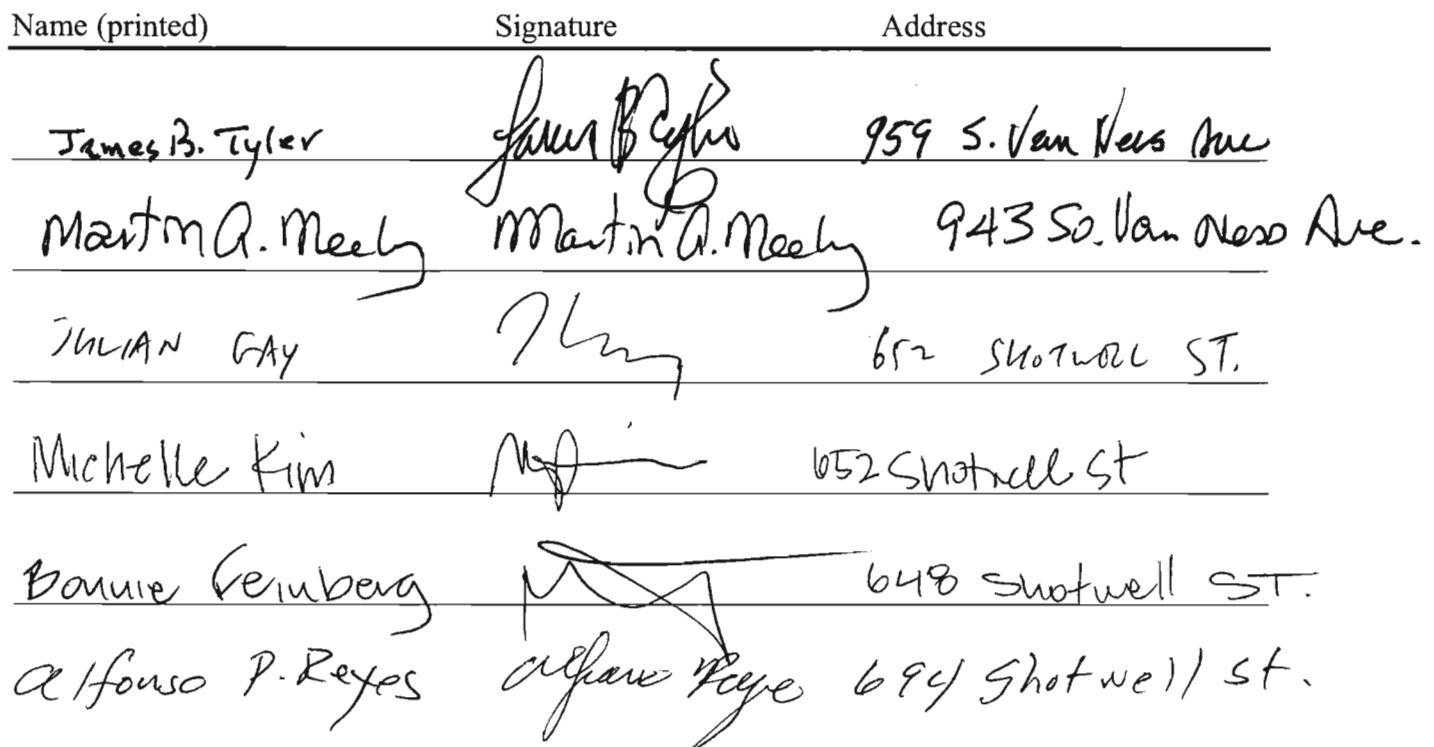 Name (printed) Signature Address
James B. Tyler James B Tyler 959 S. Van Ness Ave
Martin A. Meely Martin A. Meely 943 So. Van Ness Ave.
JULIAN GAY 652 SHOTWELL ST.
Michelle Kim 652 Shotwell St
Bonnie Feinberg 648 Shotwell ST.
Alfonso P. Reyes Alfonso Reyes 694 Shotwell St.